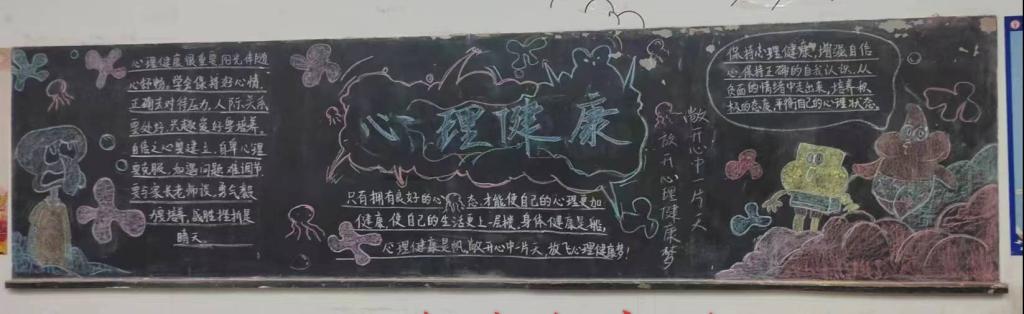 心理健康很重要,阳光伴随
心舒畅。学会保持好心情,
正确去对待压力,人际关系
要处好,兴趣爱好要培养,
自信之心要建立,自卑心理
要克服,如遇问题难调节,
要与家长老师谈,勇气毅
力培养,战胜挫折是
晴天。
心理健康
只有拥有良好的心态才能使自己的心理更加
健康,使自己的生活更上一层楼,身体健康是船,
心理健康是帆,敞开心中一片天,放飞心理健康梦!
敞开心中一片天
放开心理健康梦
保持心理健康,增滋自信
心保持正确的自我认识,从
负面的情绪中走出来,培养积
极的态度,平衡自己的心理状态。